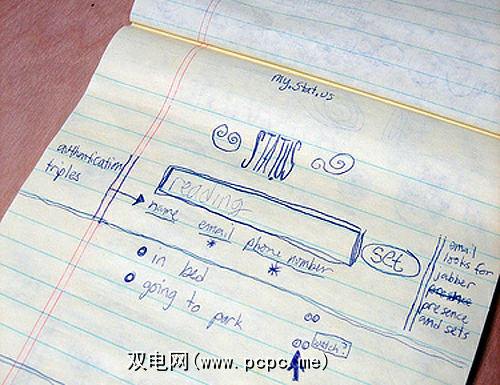 my.stat.us
STATUS
authentication
triples
reading
name
email
phone number
set
in bed
going to park
email
looks for
jabber
presence
presence
and sets
watch?
双电网(www.pcpc.me)